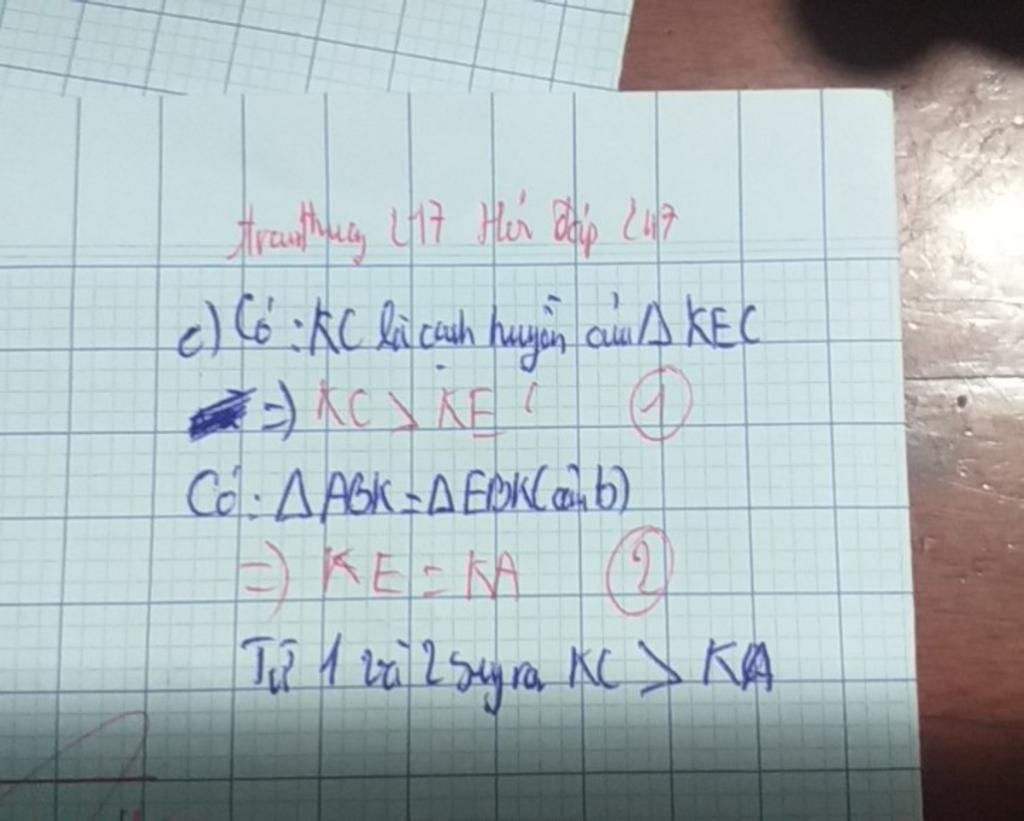 tranthuy 247 Hỏi Đáp 247
c) Có : KC là cạnh huyền của Δ KEC
=) KC > KE (1)
Có : Δ ABK = Δ EBK (câu b)
=) KE = KA (2)
Từ 1 và 2 suy ra KC > KA